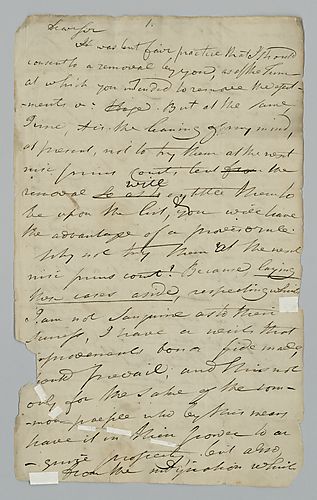 Dear Sir
1.
It was but fair practice that I should
consent to a removal by you as of the time
at which you intended to remove the eject-
ments v: Hoge. But at the same
time it is the leaning of my mind,
at present, not to try them at the next
nisi prius court, but the
removal will entitle them to
be upon the list, & you will have
the advantage of a
Why not try them at the next
nisi prius court? Because, laying
these cases aside, respecting which
I am not sanguine as to their
I have a wish that
improvements bona fide made,
should prevail; and this not
only for the sake of the com-
mon people who by this means
have it in their power to ac-
quire property, but also
from the which